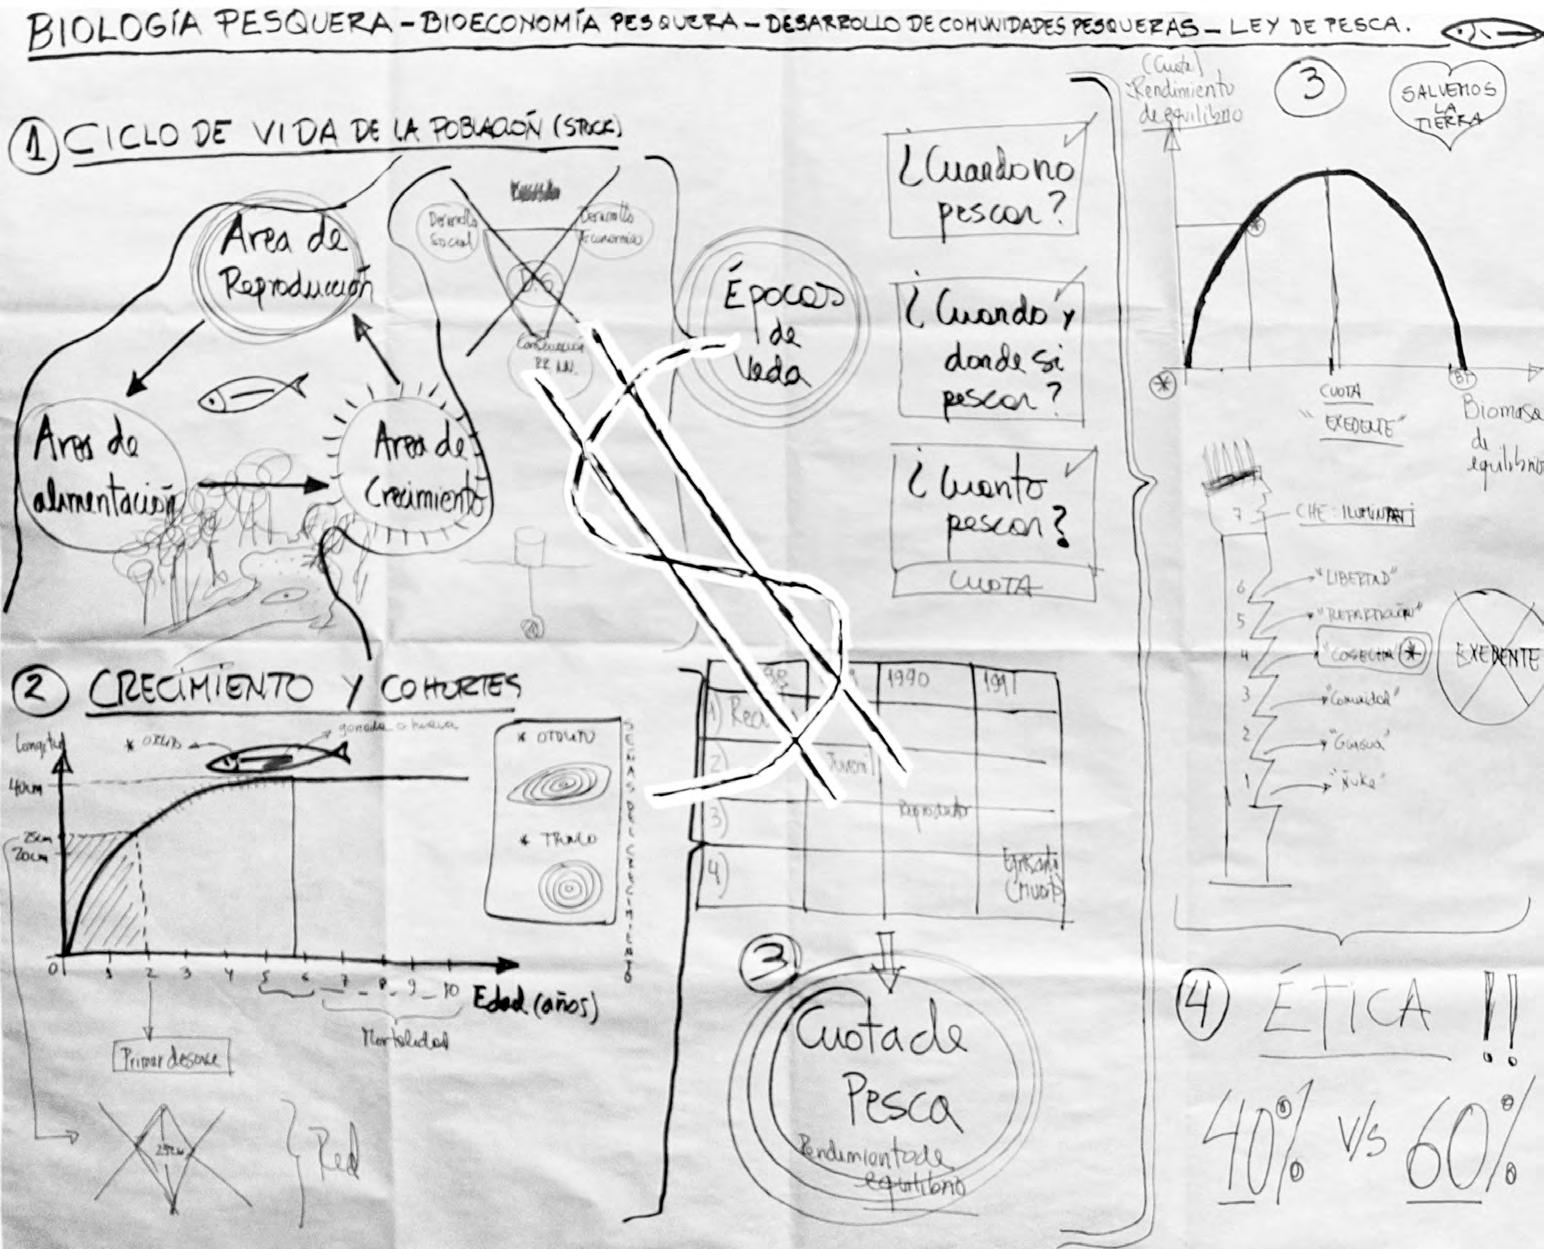 BIOLOGÍA PESQUERA - BIOECONOMÍA PESQUERA - DESARROLLO DE COMUNIDADES PESQUERAS - LEY DE PESCA.
① CICLO DE VIDA DE LA POBLACIÓN (STOCK)
Area de
Reproducción
Area de
alimentación
Area de
Crecimiento
Desarrollo
Social
Desarrollo
Económico
Conservación
RR.NN.
Épocas
de
Veda
¿Cuando no
pescar?
¿Cuando y
donde si
pescar?
¿Cuanto
pescar?
CUOTA
② CRECIMIENTO Y COHORTES
Longitud
40cm
25cm
20cm
* OTOLITO
gonada o hueva
0 1 2 3 4 5 6 7 - 8 - 9 - 10
Edad (años)
Primer desove
Mortalidad
25cm
Red
* OTOLITO
* TRONCO
1990
1991
1)
2) Juvenil
3)
Reproductor
4)
③
Cuota de
Pesca
Rendimiento de
equilibrio
(Cuota)
Rendimiento
de equilibrio
③
SALVEMOS
LA
TIERRA
CUOTA
"EXEDENTE"
Biomasa
de
equilibrio
7
6 "LIBERTAD"
5
4 "COSECHA *
3 "Comunidad"
2
1 "Ñuke"
EXEDENTE
④ ÉTICA !!
40% V/s 60%